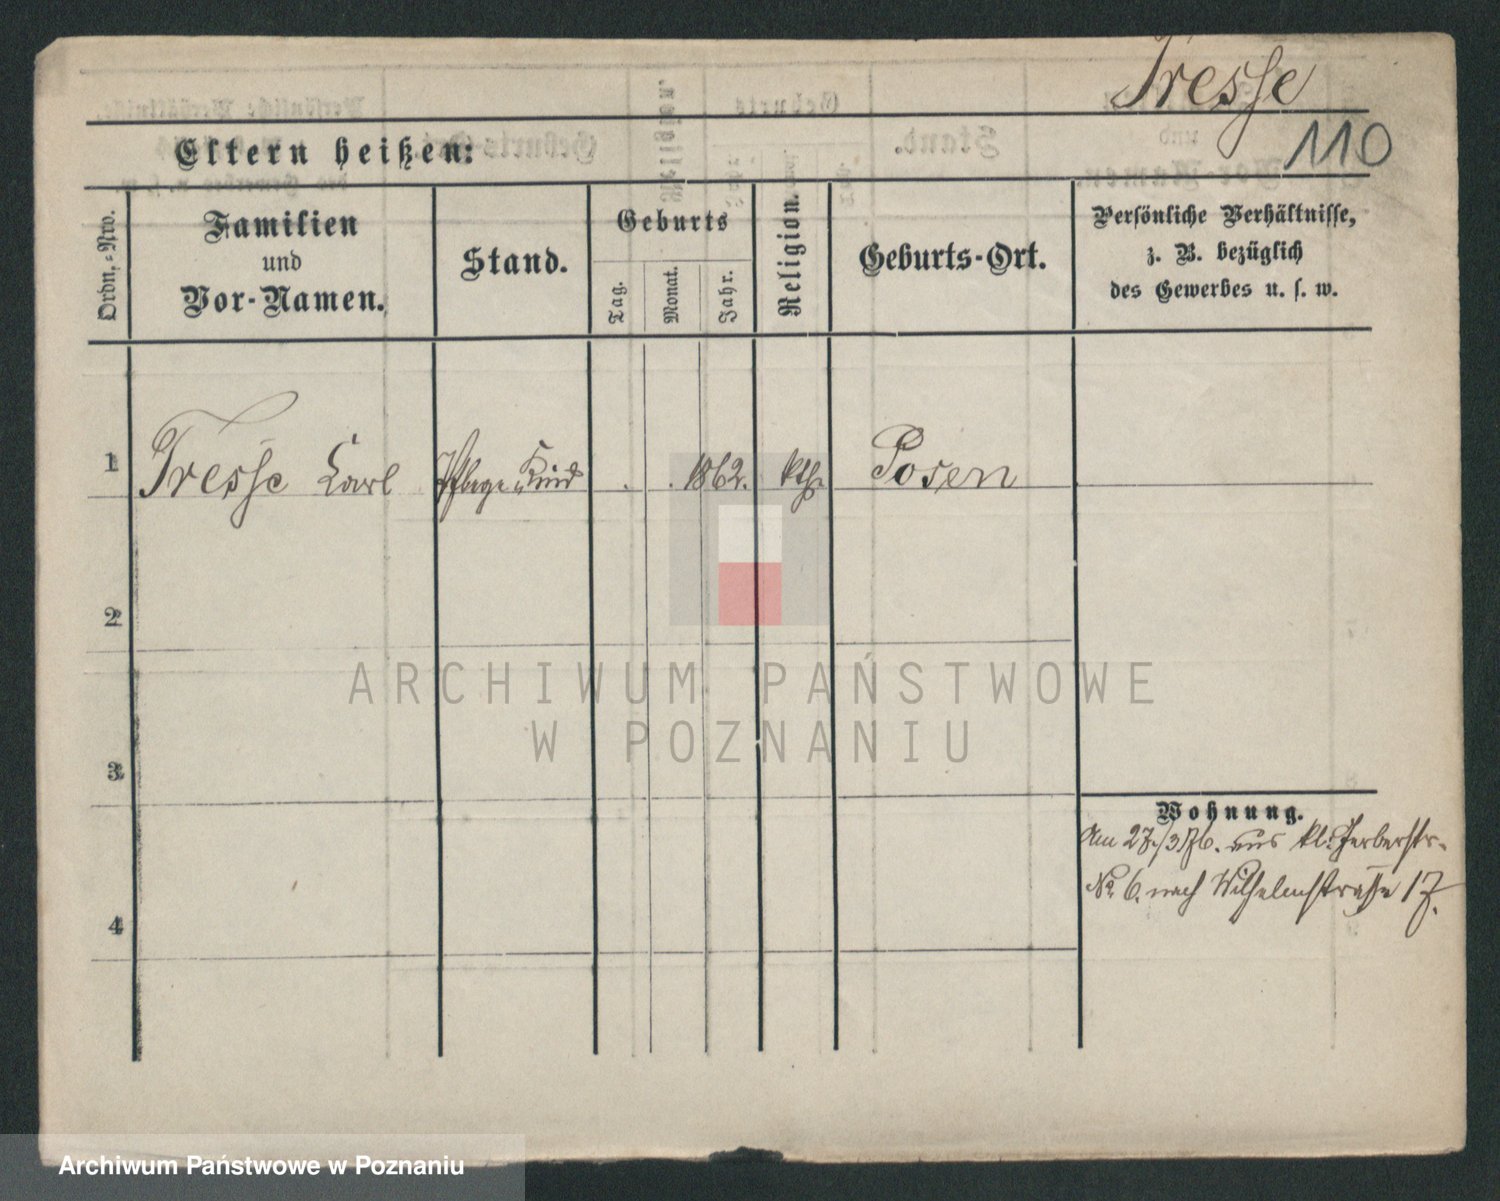 Tresse
110
Eltern heißen:
Ordn.-Nro.
Familien
und
Vor-Namen.
Stand.
Geburts
Tag.
Monat.
Jahr.
Religion.
Geburts-Ort.
Persönliche Verhältnisse,
z. B. bezüglich
des Gewerbes u. s. w.
1 Tresse Carl Pflege Kind . . 1862. kth. Posen
2
3
4
Wohnung.
Am 27/3 76. aus kl. Gerberstr.
No. 6. nach Wilhelmstraße 17.
ARCHIWUM PAŃSTWOWE
W POZNANIU
Archiwum Państwowe w Poznaniu